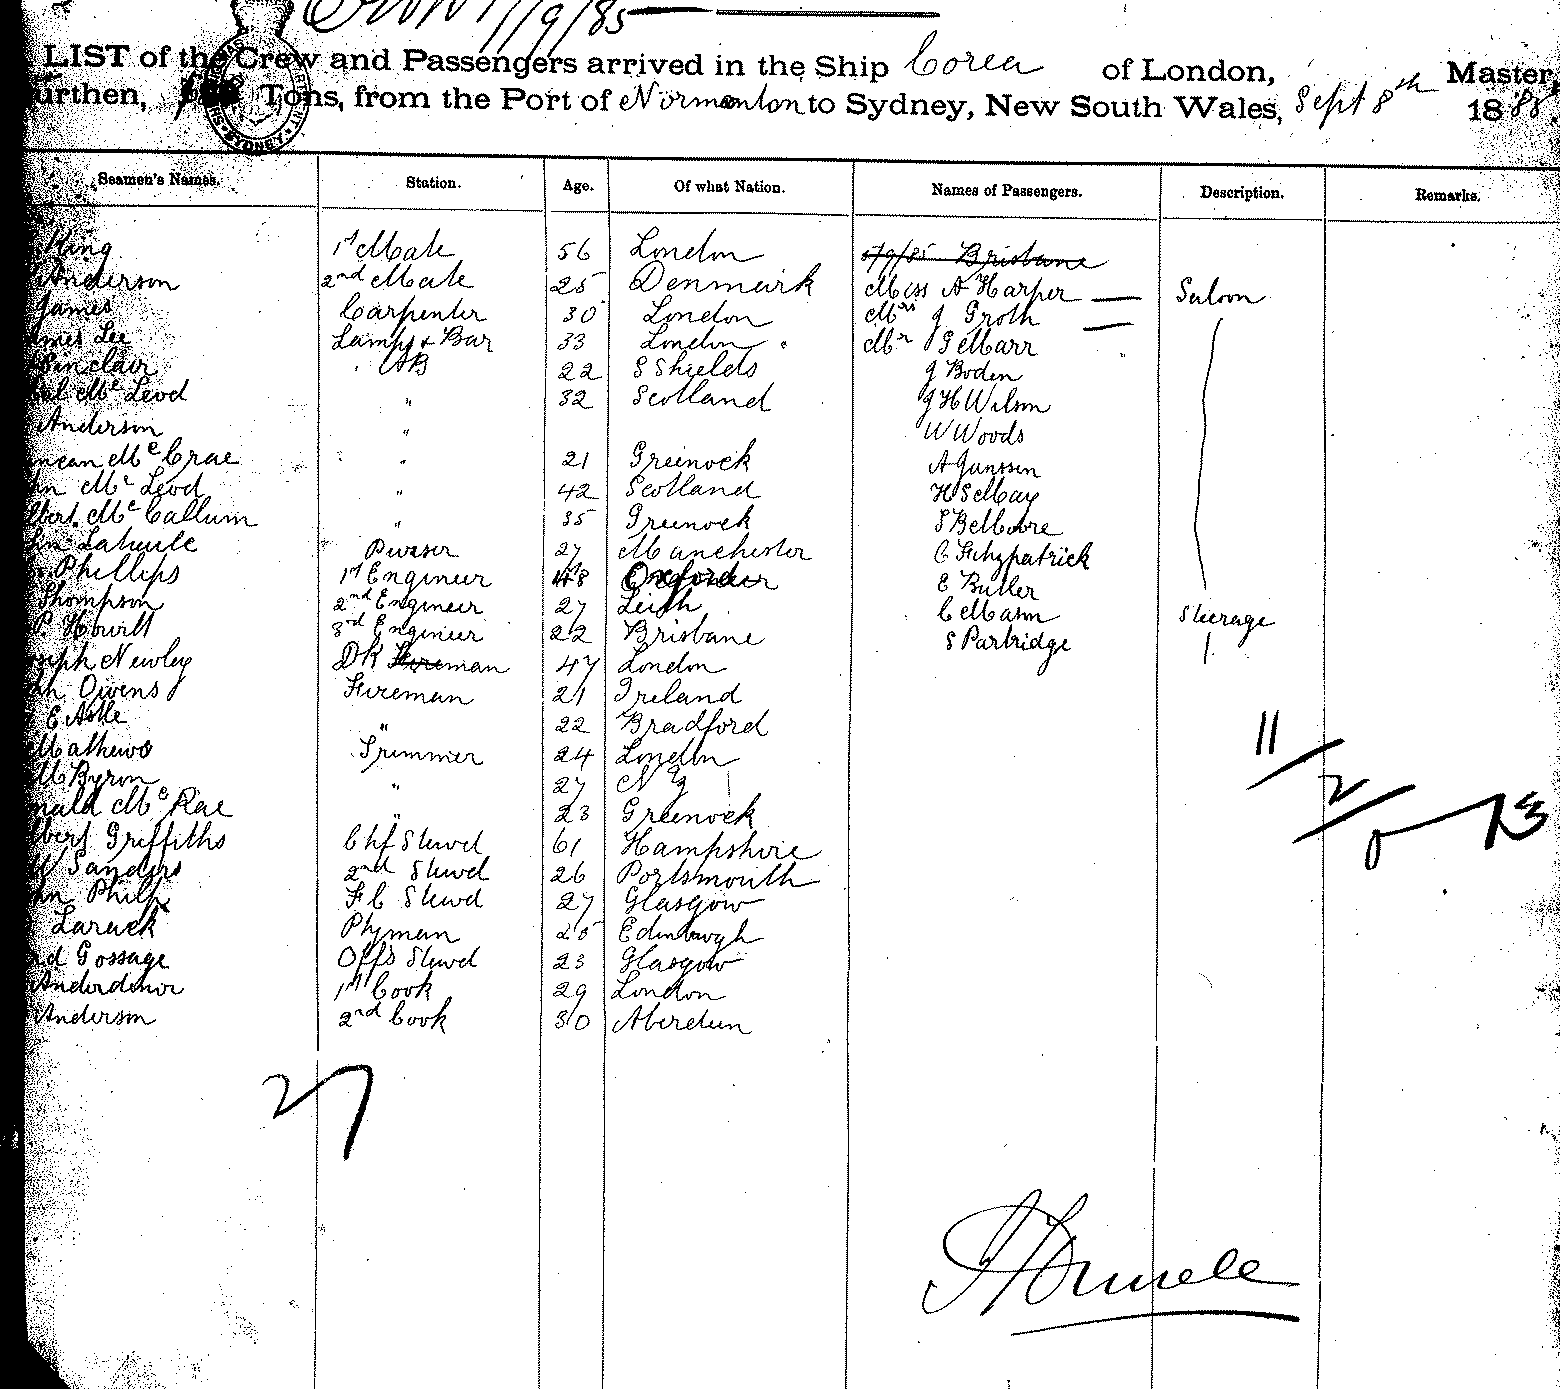 1/9/85
LIST of the Crew and Passengers arrived in the Ship Corea of London, Master,
urthen, Tons, from the Port of Normanton to Sydney, New South Wales, Sept 8th 1885.
Seamen's Names. Station. Age. Of what Nation. Names of Passengers. Description. Remarks.
King 1st Mate 56 London 1/9/85 Brisbane
Anderson 2nd Mate 25 Denmark Miss A Harper Saloon
James Carpenter 30 London Mrs J Groth
mes Lee Lamps & Bar 33 London Mr S Marr
Sinclair AB 22 S Shields J Boden
Mc Leod " 32 Scotland J H Wilson
Anderson " W Woods
ncan Mc Crae " 21 Greenock A Janssen
hn Mc Leod " 42 Scotland H S May
lbert Mc Callum " 35 Greenock S Belmore
hn Laheule Purser 27 Manchester C Fitzpatrick
Phillips 1st Engineer 48 E Butler
Thompson 2nd Engineer 27 Leith C Mason Steerage
P. Howitt 3rd Engineer 22 Brisbane S Partridge
oseph Newley DK Fireman 47 London
hn Owens Fireman 21 Ireland
E Astle " 22 Bradford
Mathews Trimmer 24 London
M Byron " 27 N Z
nald Mc Rae " 23 Greenock
lbert Griffiths Chf Stewd 61 Hampshire
Sanders 2nd Stewd 26 Portsmouth
hn Philp F C Stewd 27 Glasgow
Larack Ptyman 25 Edinburgh
rd Gossage Offs Stewd 23 Glasgow
Anderdonor 1st Cook 29 London
Anderson 2nd Cook 30 Aberdeen
11/2/0 13
27